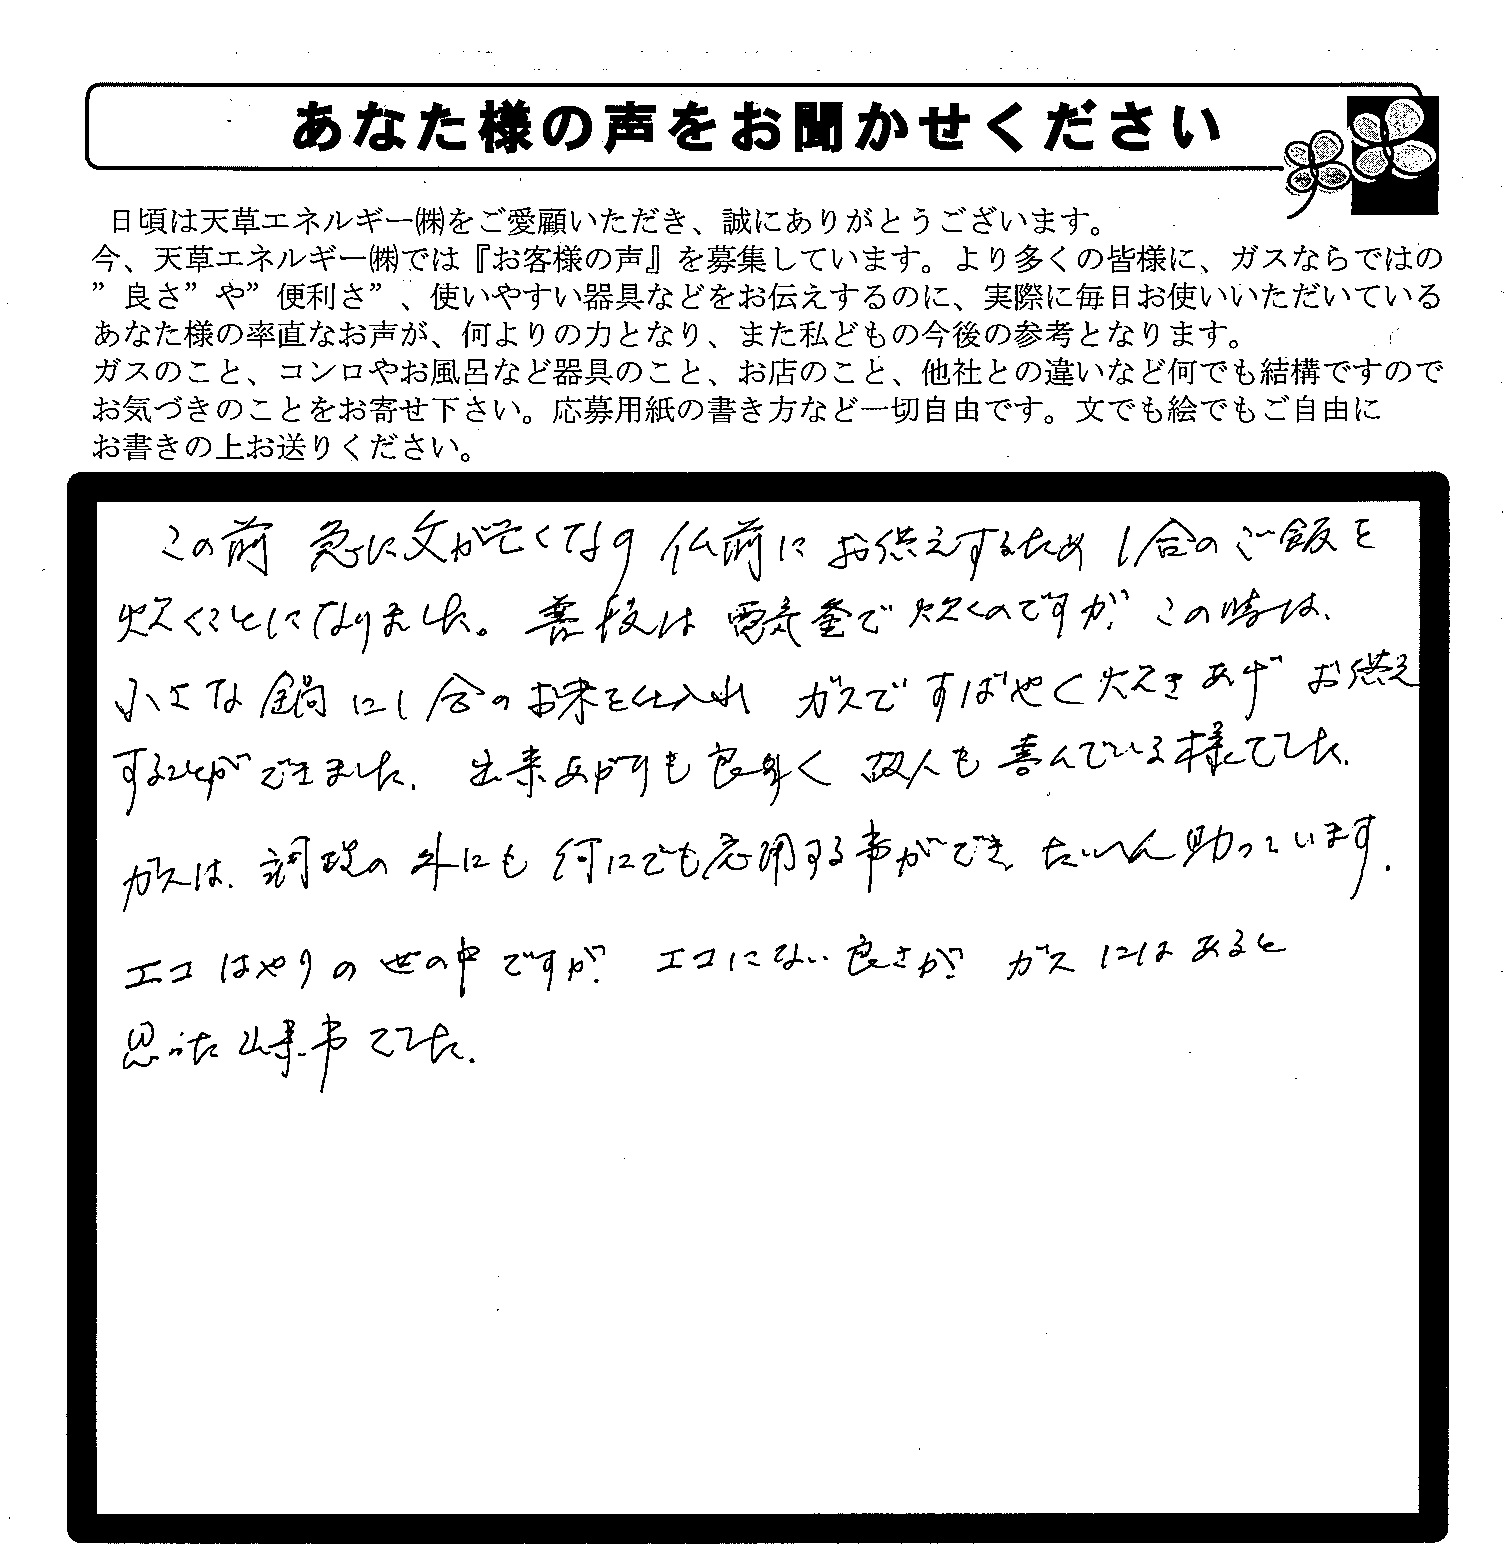 あなた様の声をお聞かせください
日頃は天草エネルギー㈱をご愛顧いただき、誠にありがとうございます。
今、天草エネルギー㈱では『お客様の声』を募集しています。より多くの皆様に、ガスならではの
”良さ”や”便利さ”、使いやすい器具などをお伝えするのに、実際に毎日お使いいただいている
あなた様の率直なお声が、何よりの力となり、また私どもの今後の参考となります。
ガスのこと、コンロやお風呂など器具のこと、お店のこと、他社との違いなど何でも結構ですので
お気づきのことをお寄せ下さい。応募用紙の書き方など一切自由です。文でも絵でもご自由に
お書きの上お送りください。
この前 急に父が亡くなり 仏前に お供えするため 1合のご飯を
炊くことになりました。普段は 電気釜で 炊くのですが、この時は、
小さな鍋に1合のお米を仕入れ ガスですばやく炊きあげ お供え
することができました。出来あがりも良く 故人も喜んでいる様でした。
ガスは、調理の外にも 何にでも応用する事ができ たいへん助っています。
エコはやりの世の中ですが、エコにない良さが ガスにはあると
思った出来事でした。